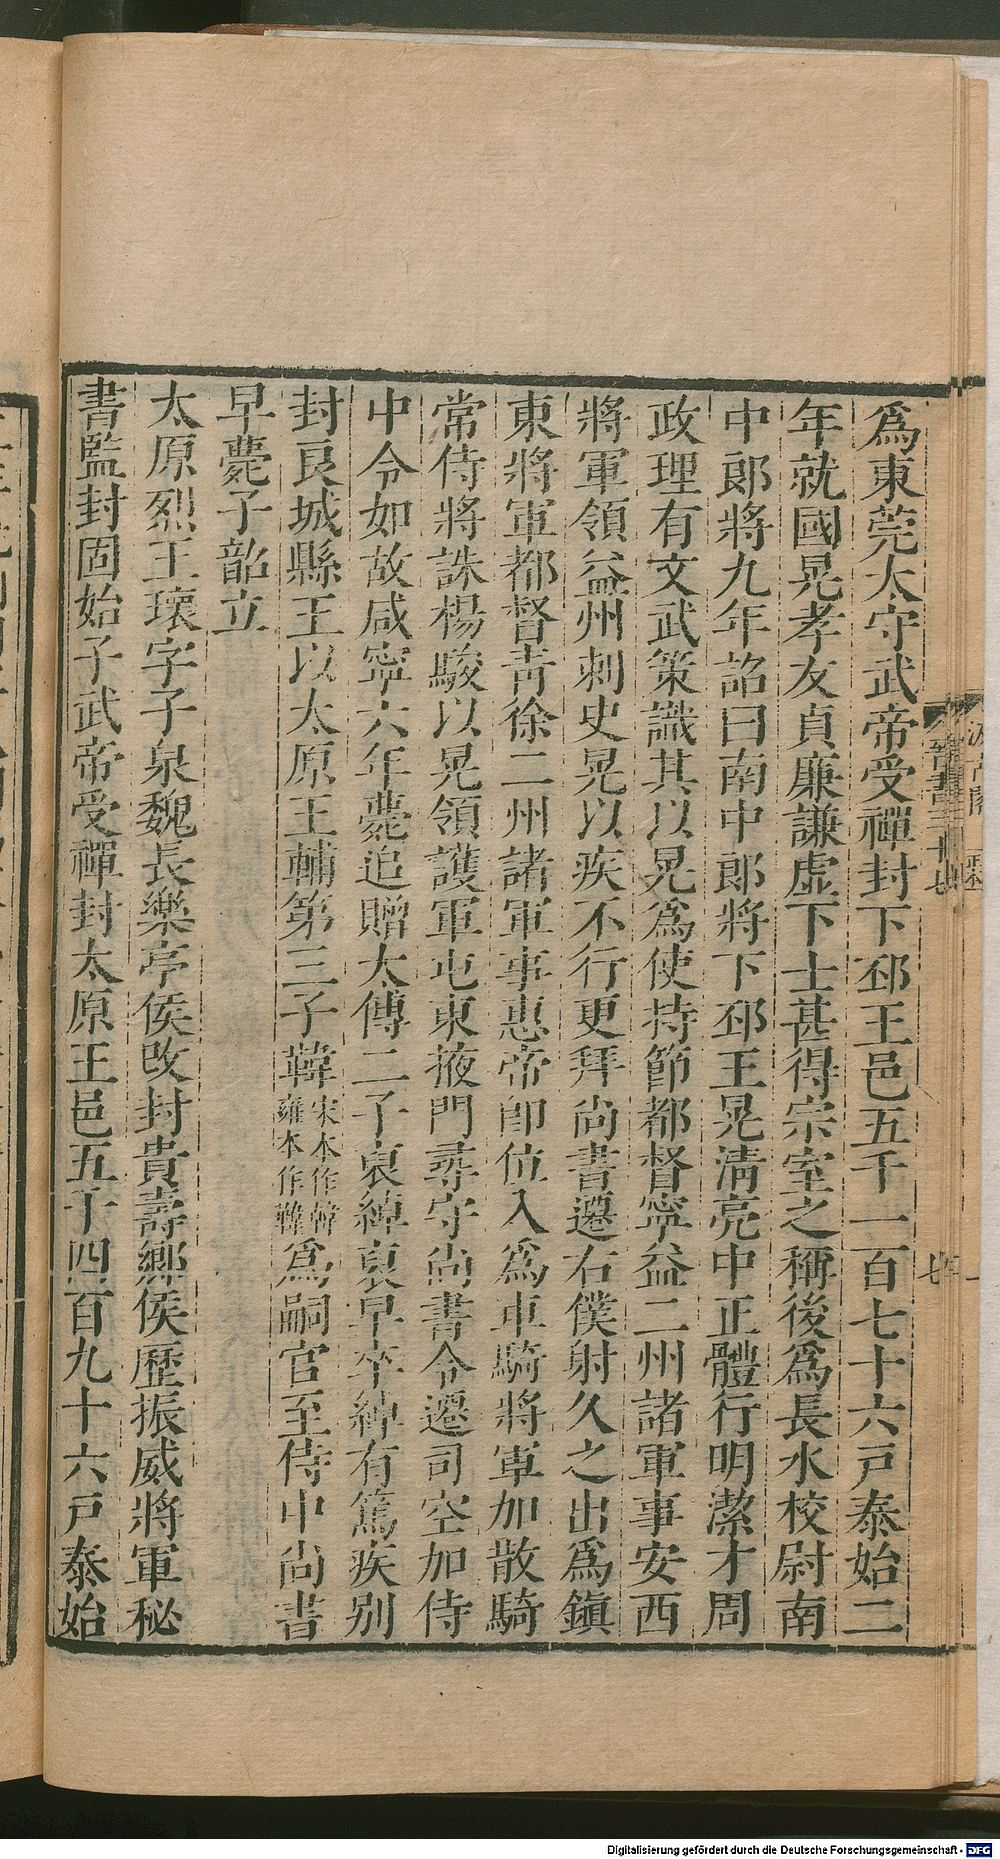 爲東莞太守武帝受禪封下邳王邑五千一百七十六戸泰始二
年就國晃孝友貞廉謙虛下士甚得宗室之稱後爲長水校尉南
中郎將九年詔曰南中郎將下邳王晃淸亮中正體行明潔才周
政理有文武策識其以晃爲使持節都督寧益二州諸軍事安西
將軍領益州刺史晃以疾不行更拜尚書遷右僕射久之出爲鎭
東將軍都督靑徐二州諸軍事惠帝卽位入爲車騎將軍加散騎
常侍將誅楊駿以晃領護軍屯東掖門尋守尚書令遷司空加侍
中令如故咸寧六年薨追贈太傅二子裒綽裒早卒綽有篤疾别
封良城縣王以太原王輔第三子韡宋本作韓雍本作韡爲嗣官至侍中尚書
早薨子韶立
太原烈王瓌字子泉魏長樂亭侯改封貴壽鄉侯歷振威將軍秘
書監封固始子武帝受禪封太原王邑五千四百九十六戸泰始
晉書三十七
七
Digitalisierung gefördert durch die Deutsche Forschungsgemeinschaft - DFG